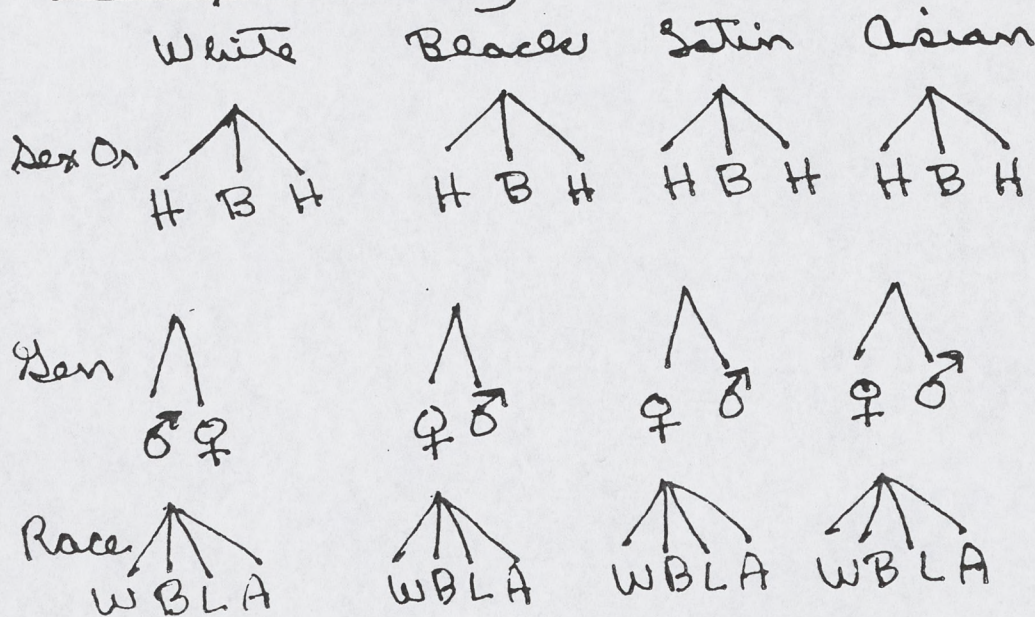 White Black Latin Asian
Sex Or
H B H H B H H B H H B H
Gen
♂ ♀ ♀ ♂ ♀ ♂ ♀ ♂
Race
W B L A W B L A W B L A W B L A